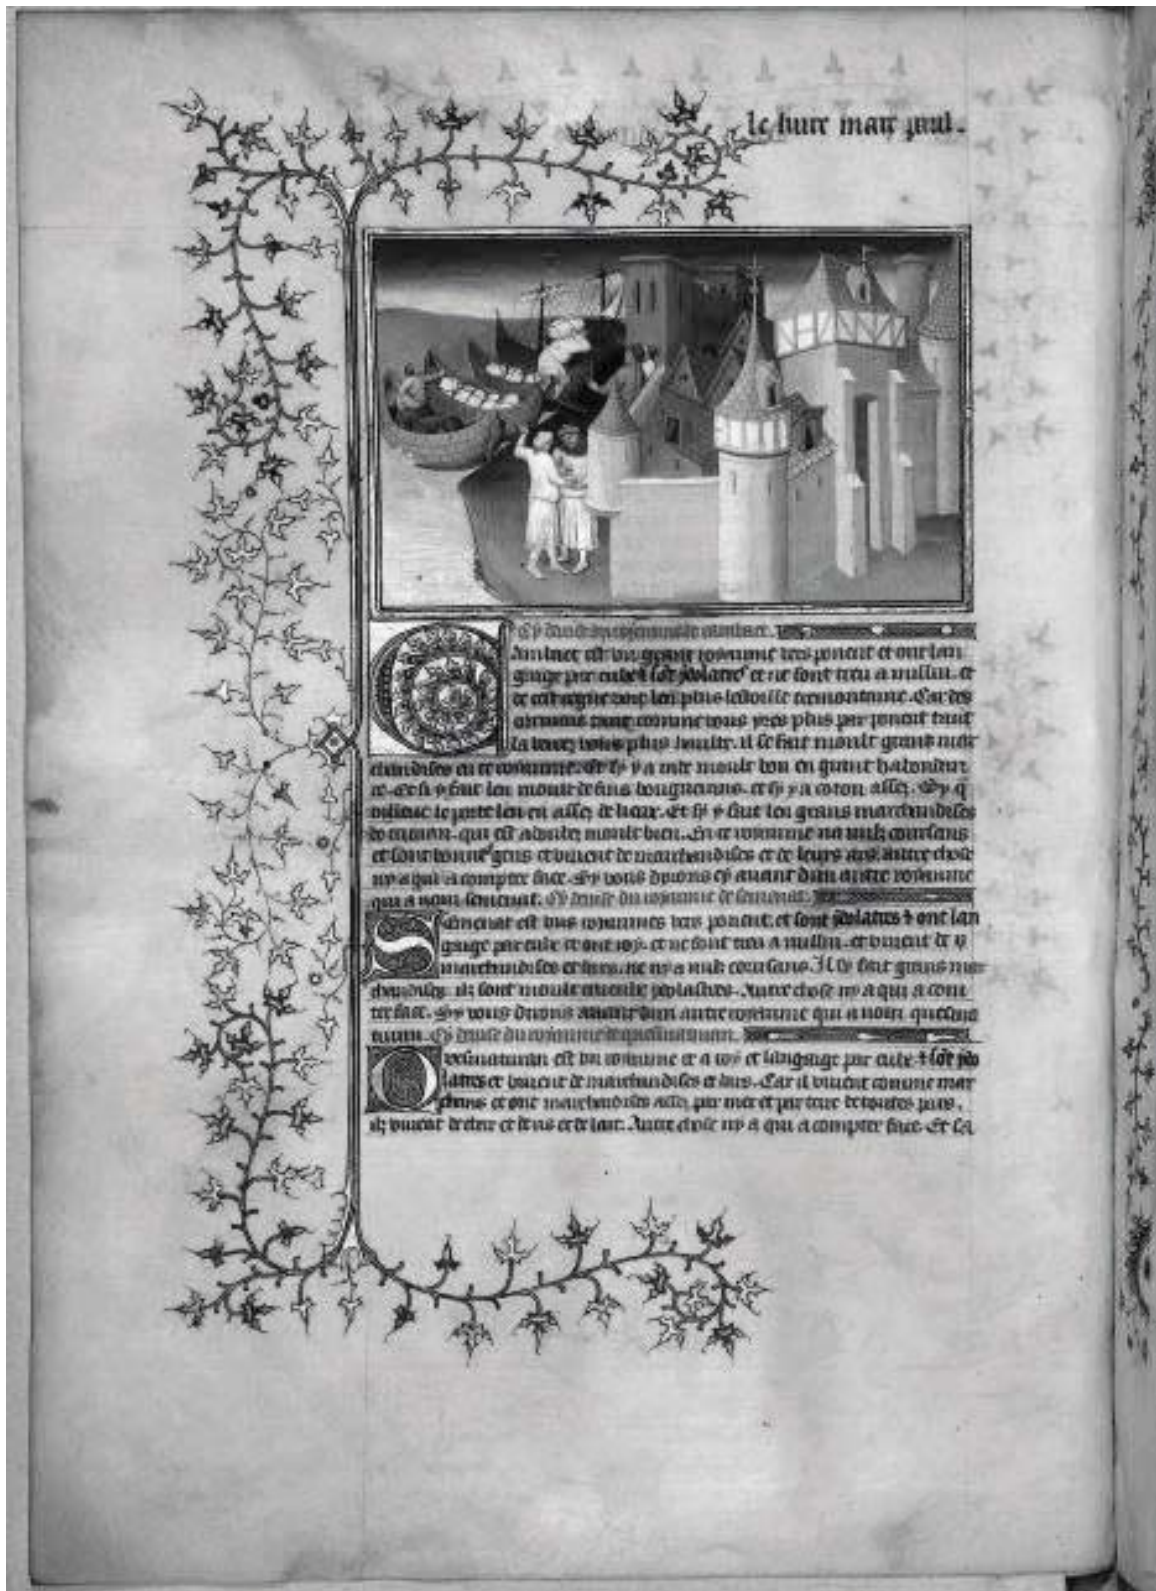 le liure marc paul.
Cy deuise du royaume de cambaet.
Cambaet est vn grant royaume vers ponent et ont lan
guaige par eulx et sõt ydolatres et ne sont treu a nullui. et
de cest regne voit len plus lestoille tremontaine. Car des
ormais tant comme vous yres plus par ponent tant
la verrez vous plus haulte. il se fait moult grans mar
chandises en ce royaume. Et sy y a inde moult bon en grant habondan
ce. Et si y fait len moult de fins bougerans. et sy y a coton assez. Sy q
le porte len en assez de lieux. Et sy y fait len grans marchandises
de cuirain. qui est moult bien. En ce royaume na nulz coursans
et sont bonnes gens et viuent de marchandises et de leurs ars. autre chose
ny a qui a compter face. Sy vous dirons cy auant dun autre royaume
qui a nom semenat. Cy deuise du royaume de semenat.
Semenat est vns royaumes vers ponent. et sont ydolatres et ont lan
guaige par eulx et ont roy. et ne sont treu a nullui. et viuent de
marchandises et dars. ne ny a nulz coursans. Il se fait grans mar
chandises. ilz sont moult ydolastres. Autre chose ny a qui a com
ter face. Sy vous dirons auant dun autre royaume qui a nom quesma
turan. Cy deuise du royaume de quesmaturan.
Quesmaturan est vn royaume et a roy et languaige par eulx. et sõt ydo
latres et viuent de marchandises et dars. Car il viuent comme mar
chans et ont marchandises assez par mer et par terre de toutes pars.
ilz viuent de char et de ris et de lait. Autre chose ny a qui a compter face. Et sa